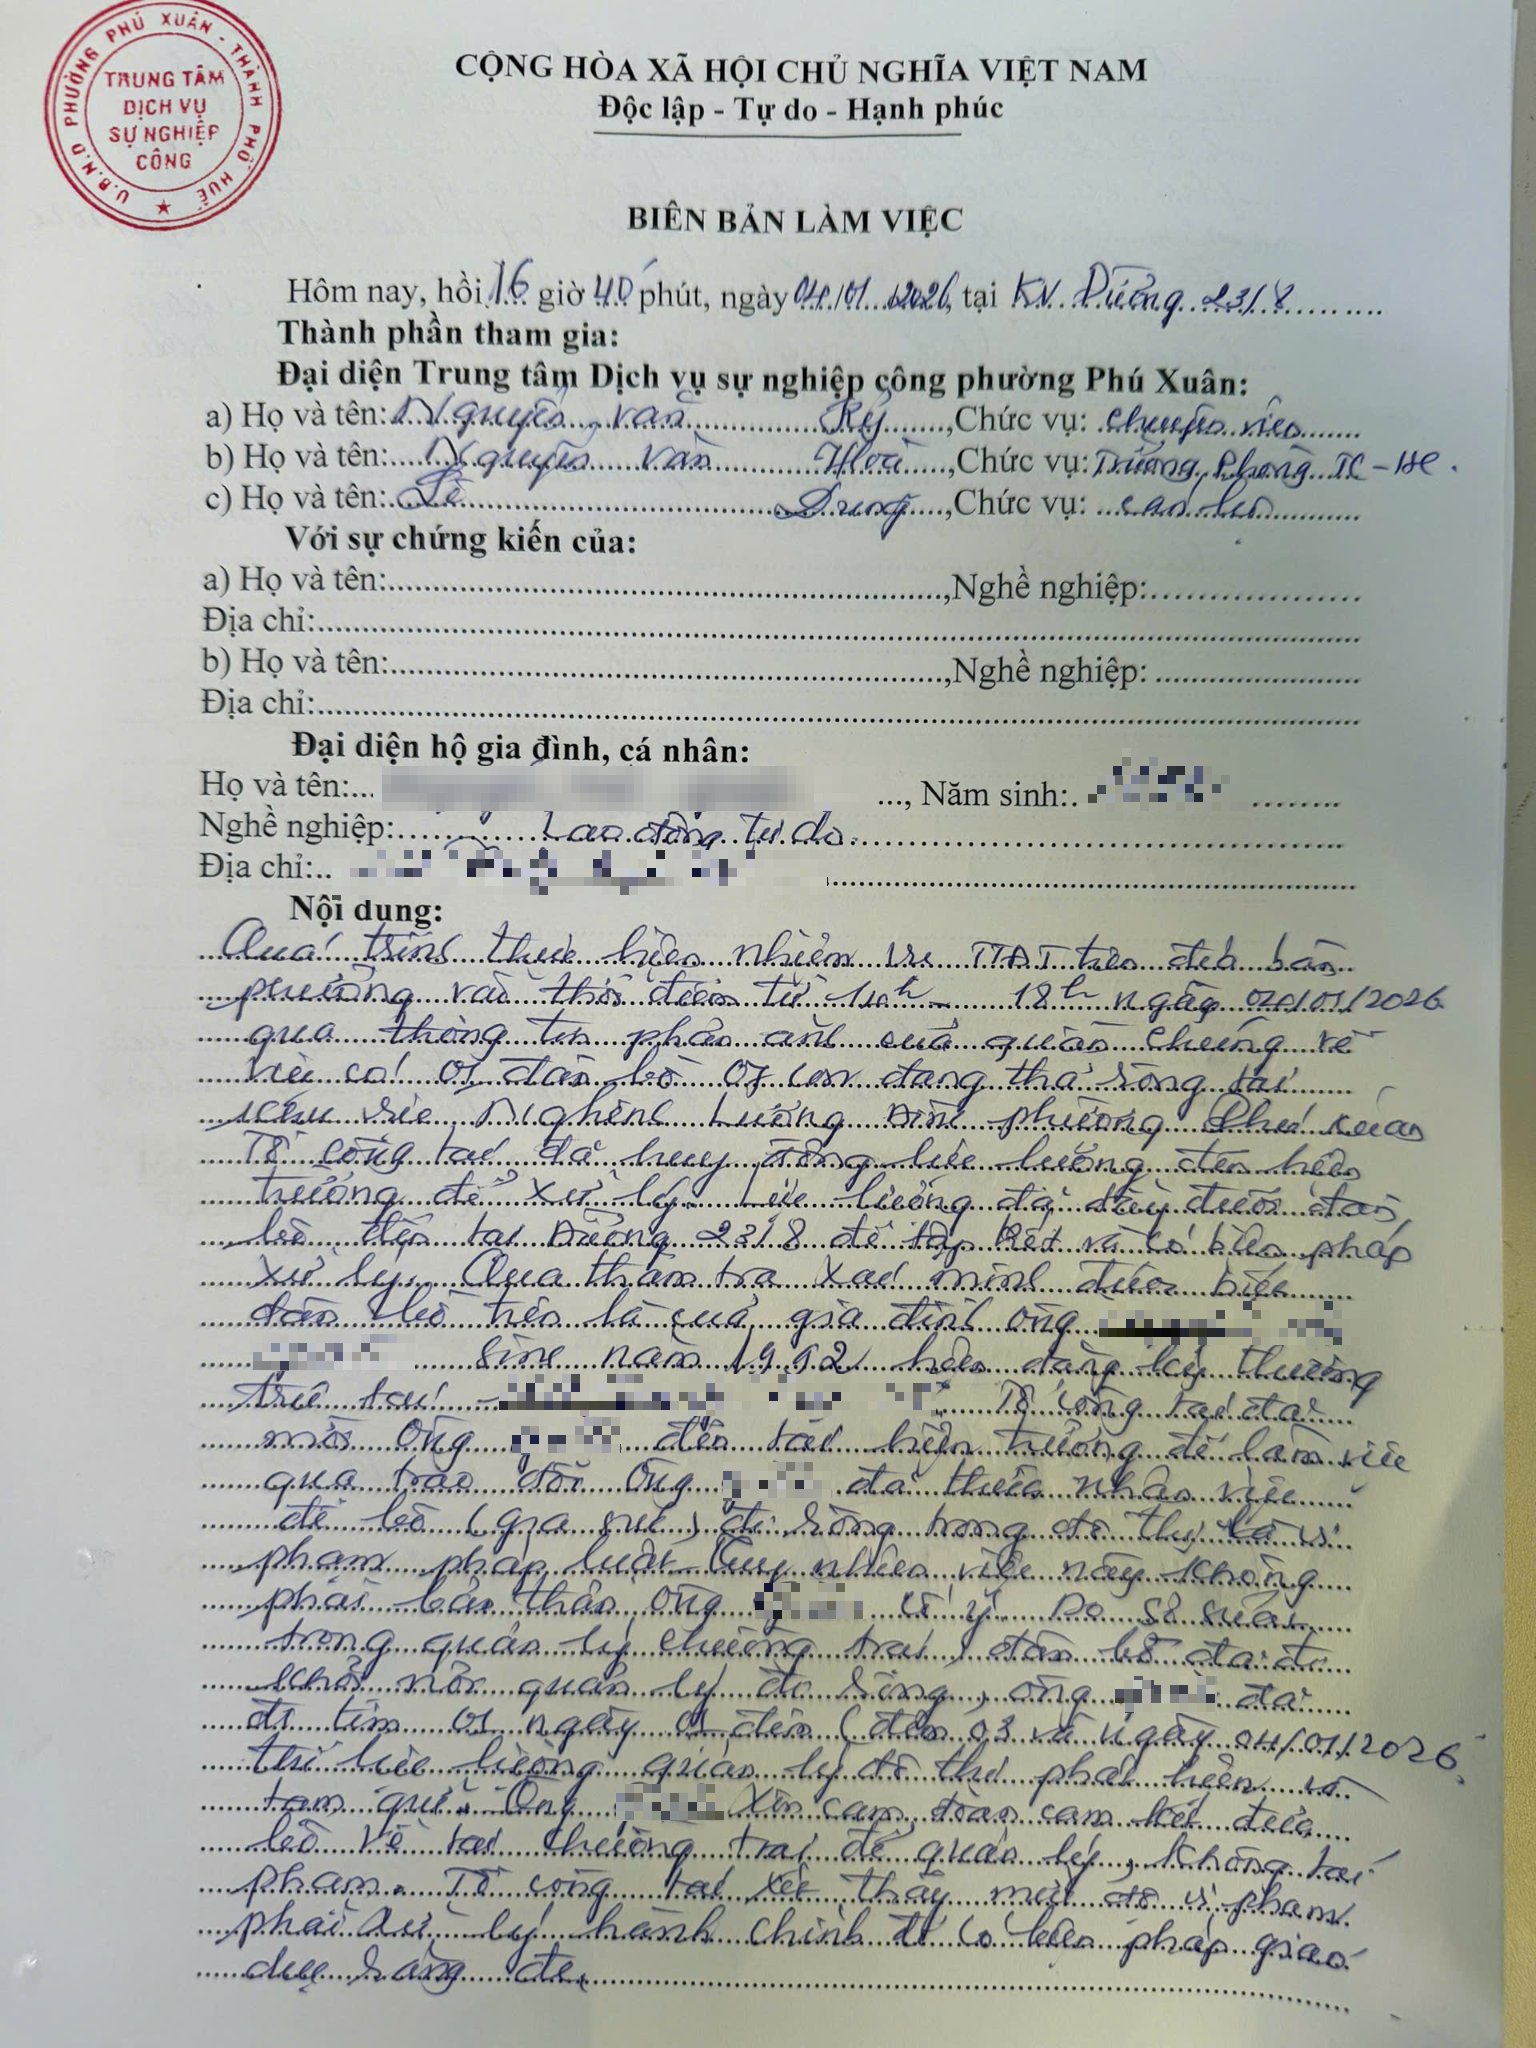 U.B.N.D PHƯỜNG PHÚ XUÂN - THÀNH PHỐ HUẾ
TRUNG TÂM
DỊCH VỤ
SỰ NGHIỆP
CÔNG
CỘNG HÒA XÃ HỘI CHỦ NGHĨA VIỆT NAM
Độc lập - Tự do - Hạnh phúc
BIÊN BẢN LÀM VIỆC
Hôm nay, hồi 16 giờ 40 phút, ngày 04/01/2026, tại KV. Đường 23/8
Thành phần tham gia:
Đại diện Trung tâm Dịch vụ sự nghiệp công phường Phú Xuân:
a) Họ và tên: Nguyễn văn Kỷ, Chức vụ: chuyên viên
b) Họ và tên: Nguyễn văn Hoà, Chức vụ: Trưởng Phòng TC-HC.
c) Họ và tên: Lê Dung, Chức vụ: cán bộ
Với sự chứng kiến của:
a) Họ và tên:, Nghề nghiệp:
Địa chỉ:
b) Họ và tên:, Nghề nghiệp:
Địa chỉ:
Đại diện hộ gia đình, cá nhân:
Họ và tên:, Năm sinh:
Nghề nghiệp: Lao động tự do
Địa chỉ:
Nội dung:
Quá trình thực hiện nhiệm vụ TTĐT trên địa bàn
phường vào thời điểm từ 18h ngày 04/01/2026
qua thông tin phản ánh của quần chúng về
việc có 01 đàn bò 07 con đang thả rông tại
khu vực Nghênh Lương Đình phường Phú Xuân
Tổ công tác đã huy động lực lượng đến hiện
trường để xử lý. Lực lượng đã đuổi đàn
bò đến tại Đường 23/8 để tập kết và có biện pháp
xử lý. Qua thẩm tra xác minh được biết
đàn bò trên là của gia đình ông
sinh năm 1992 hiện đăng ký thường
trú tại Tổ công tác đã
mời Ông đến tại hiện trường để làm việc
qua trao đổi Ông đã thừa nhận việc
để bò (gia súc) đi rông trong đô thị là vi
phạm pháp luật tuy nhiên việc này không
phải bản thân ông cố ý. Do sơ suất
trong quản lý chuồng trại, đàn bò đã đi
khỏi nơi quản lý đi rông, ông đã
đi tìm 01 ngày 01 đêm (đêm 03 và ngày 04/01/2026
thì lực lượng quản lý đô thị phát hiện và
tạm giữ. Ông xin cam đoan cam kết đưa
bò về tại chuồng trại để quản lý, không tái
phạm. Tổ công tác xét thấy mức độ vi phạm
phải xử lý hành chính để có biện pháp giáo
dục răng đe.